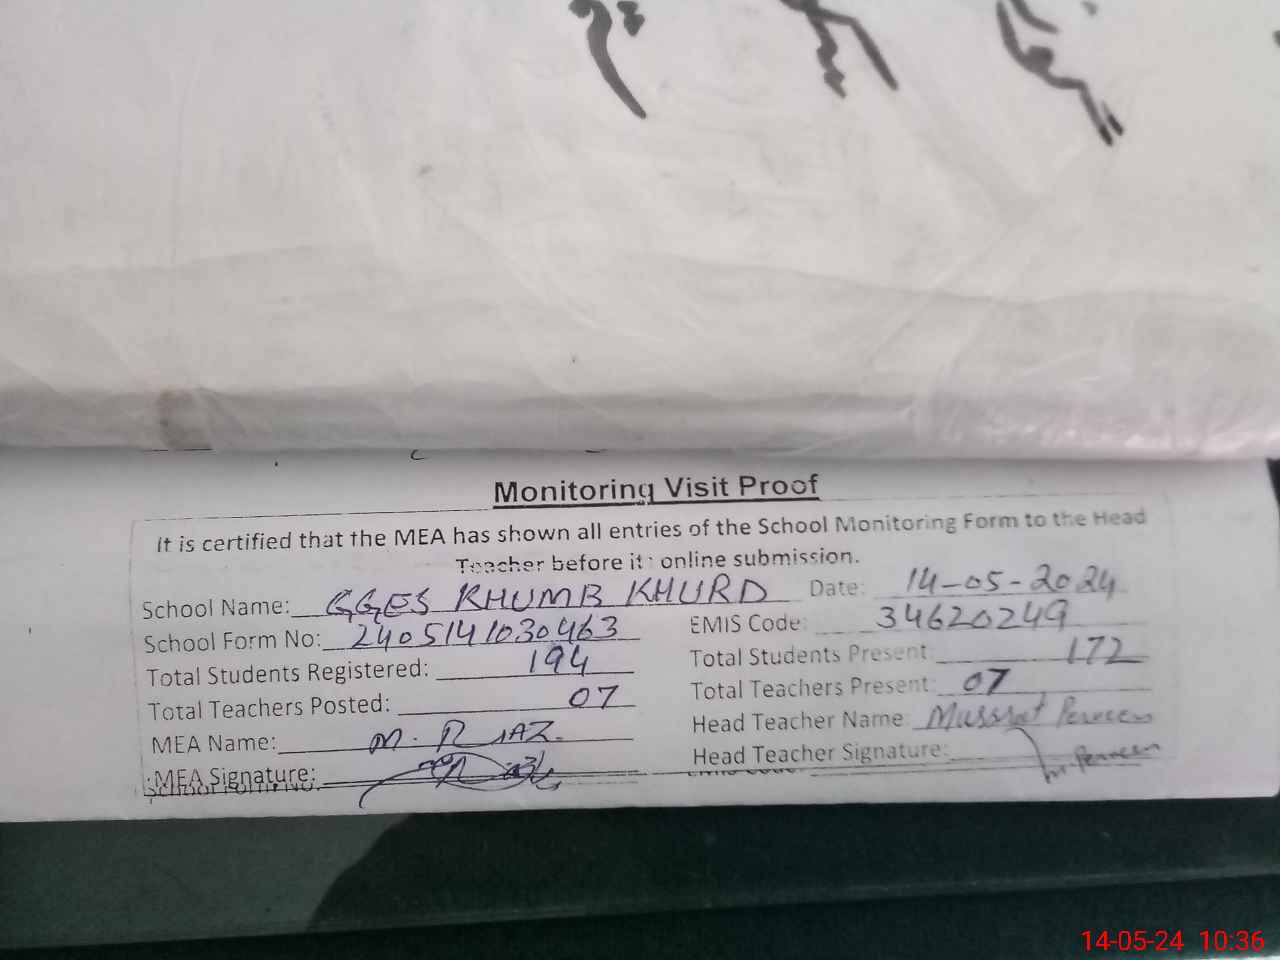 Monitoring Visit Proof
It is certified that the MEA has shown all entries of the School Monitoring Form to the Head
Teacher before it online submission.
School Name: GGES KHUMB KHURD Date: 14-05-2024
School Form No: 2405141030463 EMIS Code: 34620249
Total Students Registered: 194 Total Students Present: 172
Total Teachers Posted: 07 Total Teachers Present: 07
MEA Name: M. RIAZ. Head Teacher Name: Mussrat Perveen
MEA Signature: Head Teacher Signature: m. Perveen
14-05-24 10:36